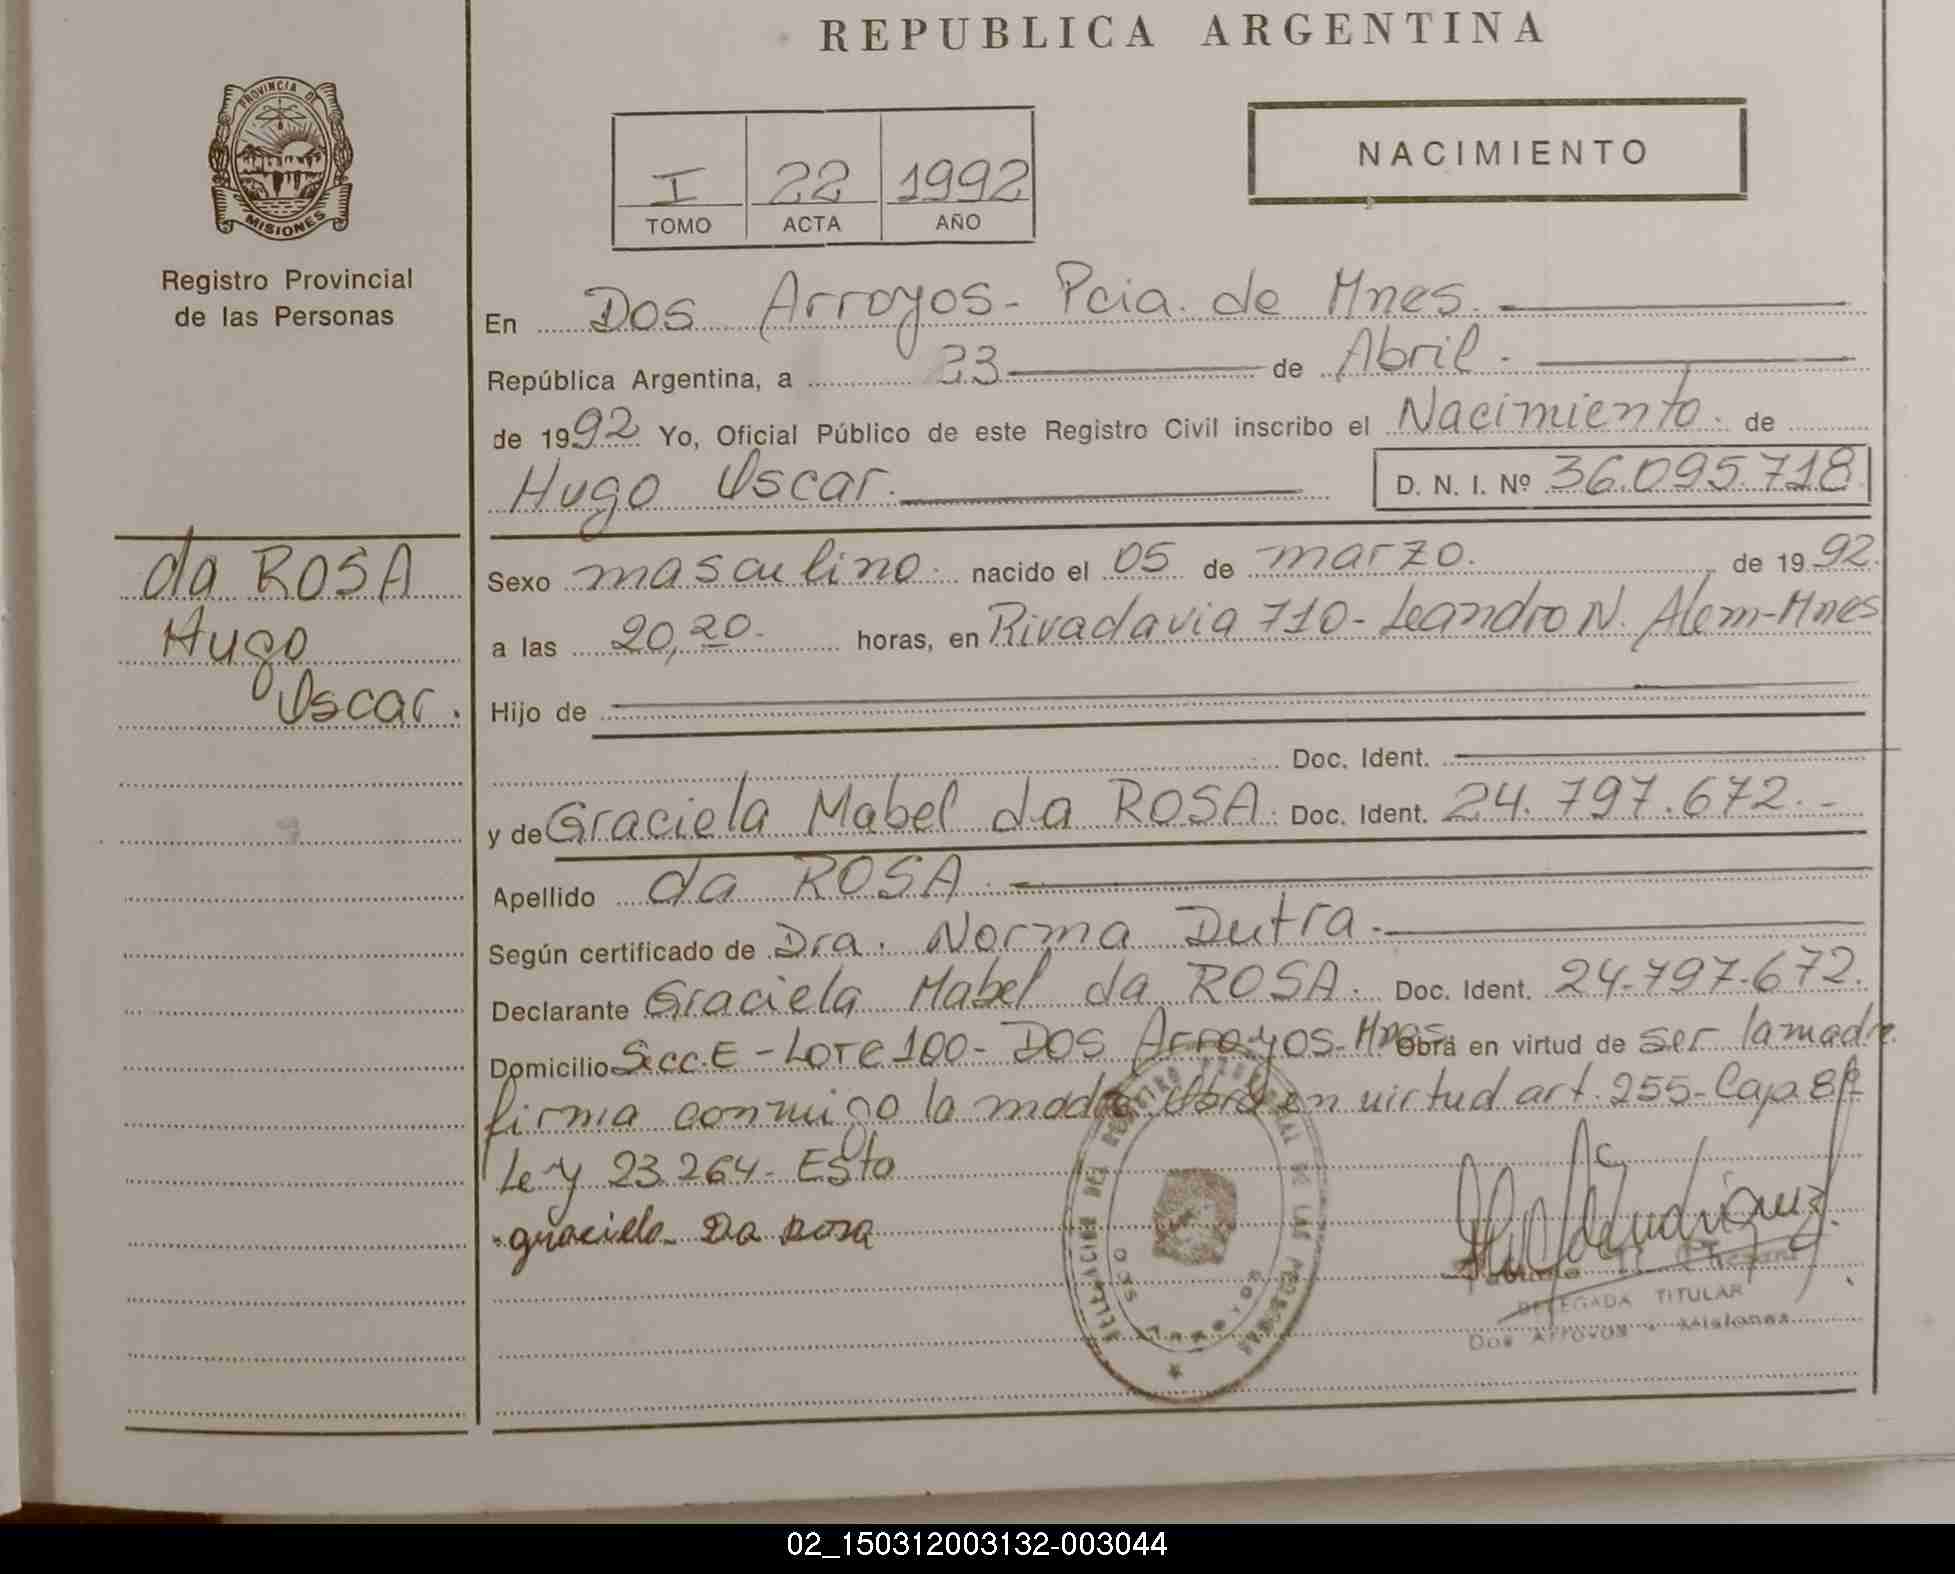 REPUBLICA ARGENTINA
PROVINCIA DE
MISIONES
Registro Provincial
de las Personas
I 22 1992
TOMO ACTA AÑO
NACIMIENTO
En Dos Arroyos - Pcia. de Mnes.
República Argentina, a 23 de Abril.
de 1992 Yo, Oficial Público de este Registro Civil inscribo el Nacimiento. de
Hugo Oscar. D. N. I. Nº 36.095.718
da ROSA
Hugo
Oscar.
Sexo masculino. nacido el 05 de marzo. de 1992.
a las 20,20. horas, en Rivadavia 710 - Leandro N. Alem - Mnes
Hijo de
Doc. Ident.
y de Graciela Mabel da ROSA. Doc. Ident. 24.797.672.-
Apellido da ROSA.
Según certificado de Dra. Norma Dutra.
Declarante Graciela Mabel da ROSA. Doc. Ident. 24.797.672.
Domicilio Secc. E - Lote 100 - Dos Arroyos - Mnes. Obra en virtud de ser la madre.
firma conmigo la madre Obra en virtud art. 255 - Cap. 8º
Ley 23.264 - Esta
graciela Da Rosa
DELEGACION DEL REGISTRO PROVINCIAL DE LAS PERSONAS
DOS ARROYOS
DELEGADA TITULAR
Dos Arroyos - Misiones
02_150312003132-003044